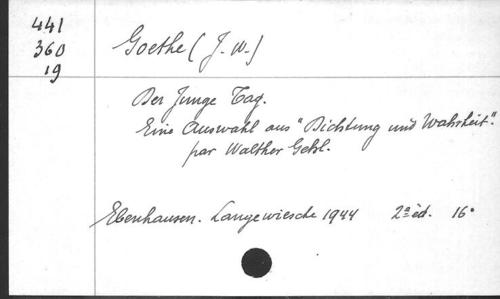 441
360
19
Goethe (J. W.)
Der Junge Tag.
Eine Auswahl aus "Dichtung und Wahrheit".
par Walther Gehl.
Ebenhausen. Langewiesche 1944 2ª éd. 16°